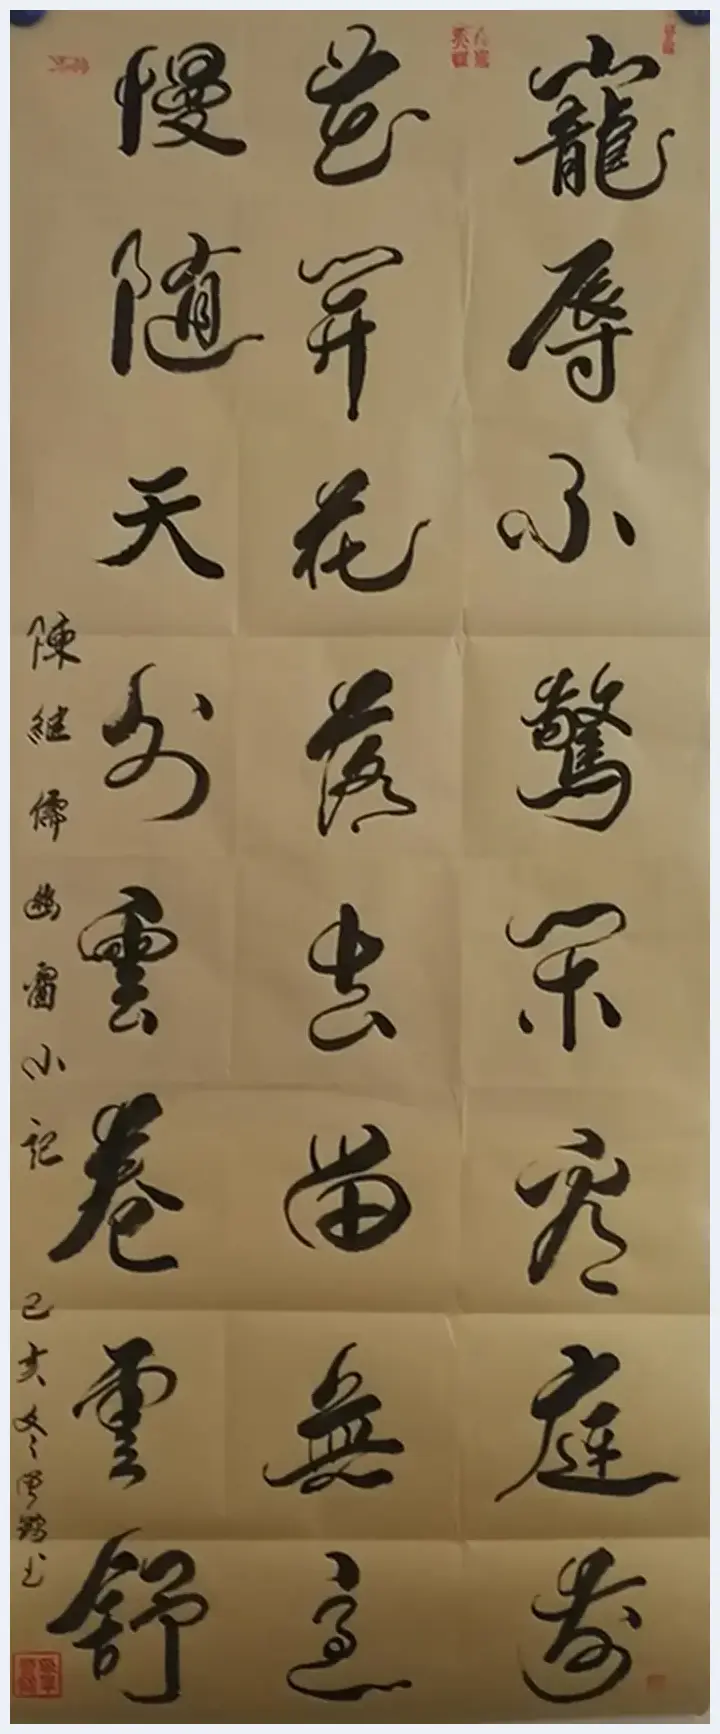 寵辱不驚閑看庭前
花開花落去留無意
慢随天外雲卷雲舒
陳繼儒幽窗小記
己亥冬